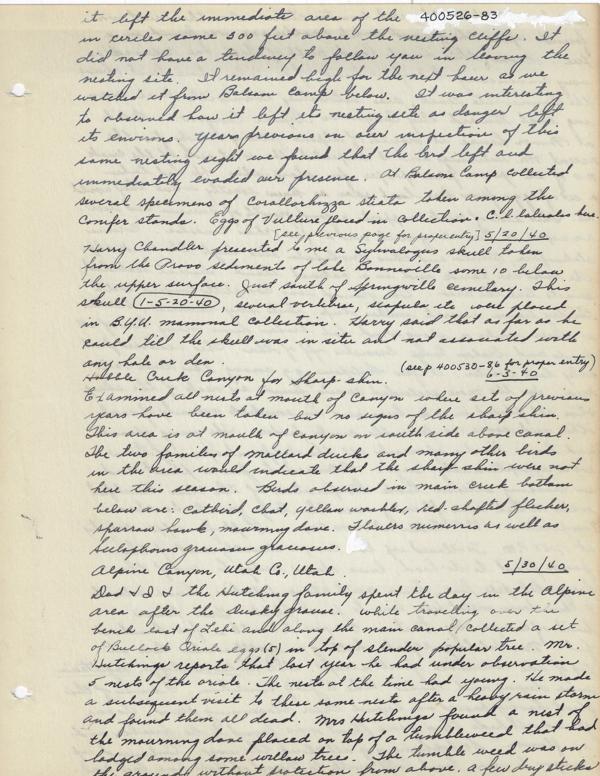 it left the immediate area of the 400526-83
in circles some 300 feet above the nesting cliffs. It
did not have a tendency to follow you in leaving the
nesting site. It remained high for the next hour as we
watched it from Balsam Camp below. It was interesting
to observed how it left its nesting site as danger left
its environs. Years previous on our inspection of this
same nesting sight we found that the bird left and
immediately evaded our presence. At Balsam Camp collected
several specimens of Corallorhizza striata taken among the
Conifer stands. Eggs of Vulture placed in collection. C.L. here.
[see previous page for proper entry] 5/20/40
Harry Chandler presented to me a skull taken
from the Provo sediments of lake Bonneville some 10 below
the upper surface. Just south of Springville cemetary. This
skull (1-5-20-40), several vertebrae, scapula etc were placed
in B.Y.U. mammal collection. Harry said that as far as he
could tell the skull was in site and not associated with
any hole or den. (see p 400530-86 for proper entry)
Hobble Creek Canyon for Sharp-shin. 6-3-40
Examined all nests at mouth of Canyon where set of previous
years have been taken but no signs of the sharp shin.
This area is at mouth of canyon on south side above canal.
The two families of mallard ducks and many other birds
in the area would indicate that the sharp shin were not
here this season. Birds observed in main creek bottom
below are: Catbird, Chat, yellow warbler, red-shafted flicker,
sparrow hawk, mourning dove. Flowers numerous as well as

Alpine Canyon, Utah Co., Utah. 5/30/40
Dad & I & the Hutchings family spent the day in the Alpine
area after the Dusky grouse. While travelling over the
bench east of Lehi and along the main canal collected a set
of Bullock Oriole eggs (5) in top of slender popular tree. Mr.
Hutchings reports that last year he had under observation
5 nests of the oriole. The nests at the time had young. He made
a subsequent visit to these same nests after a heavy rain storm
and found them all dead. Mrs Hutchings found a nest of
the mourning dove placed on top of a tumbleweed that had
lodged among some willow trees. The tumble weed was on
the ground without protection from above. a few bug sticks